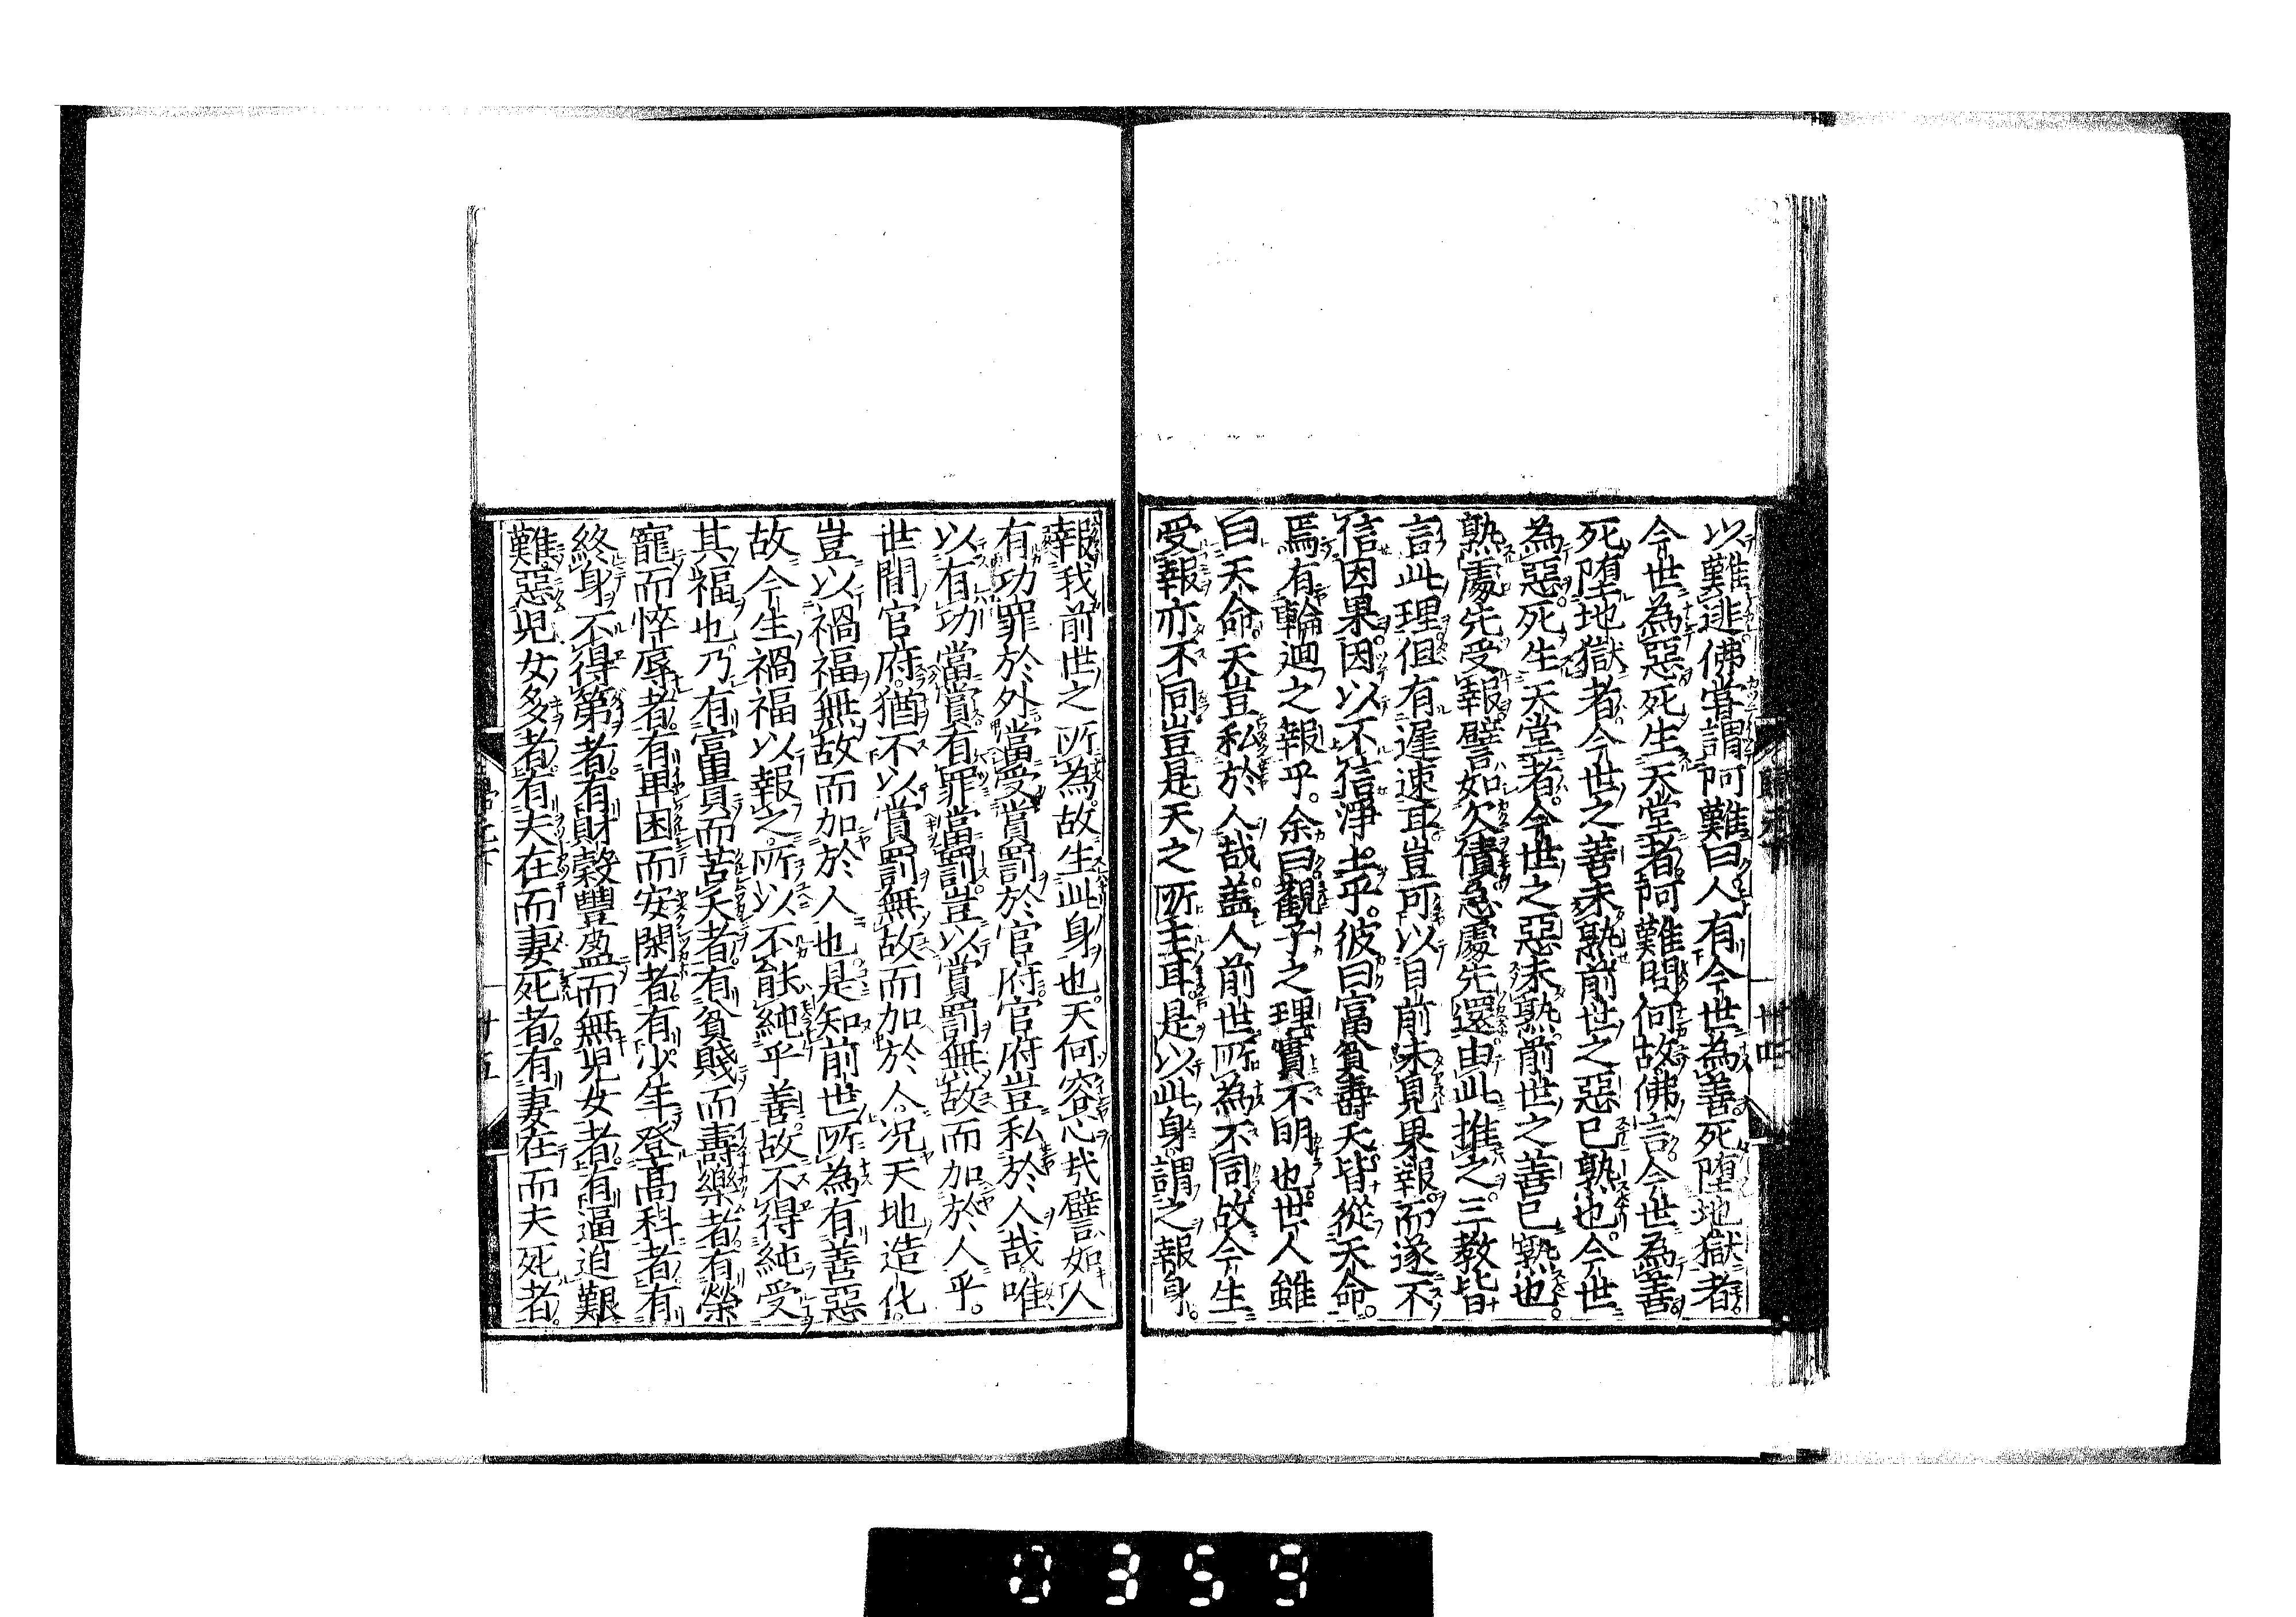 以難逃佛嘗謂阿難曰人有今世為善死堕地獄者
今世為惡死生天堂者阿難問何故佛言今世為善
死堕地獄者今世之善未熟前世之惡已熟也今世
為惡死生天堂者今世之惡未熟前世之善已熟也
熟處先受報譬如欠債急處先還由此推之三教皆
言此理但有遲速耳豈可以目前未見果報而遂不
信因果因以不信淨土乎彼曰富貧壽夭皆從天命
焉有輪迴之報乎余曰觀子之理實不明也世人雖
曰天命天豈私於人哉蓋人前世所為不同故今生
受報亦不同豈是天之所主耳是以此身謂之報身
報我前世之所為故生此身也天何容心哉譬如人
有功罪於外當受賞罰於官府官府豈私於人哉唯
以有功當賞有罪當罰豈以賞罰無故而加於人乎
世間官府猶不以賞罰無故而加於人况天地造化
豈以禍福無故而加於人也是知前世所為有善惡
故今生禍福以報之所以不能純乎善故不得純受
其福也乃有富貴而苦夭者有貧賤而壽樂者有榮
寵而悴辱者有卑困而安閑者有少年登高科者有
終身不得第者有財穀豐盈而無兒女者有逼迫艱
難惡兒女多者有夫在而妻死者有妻在而夫死者
廿五
0359